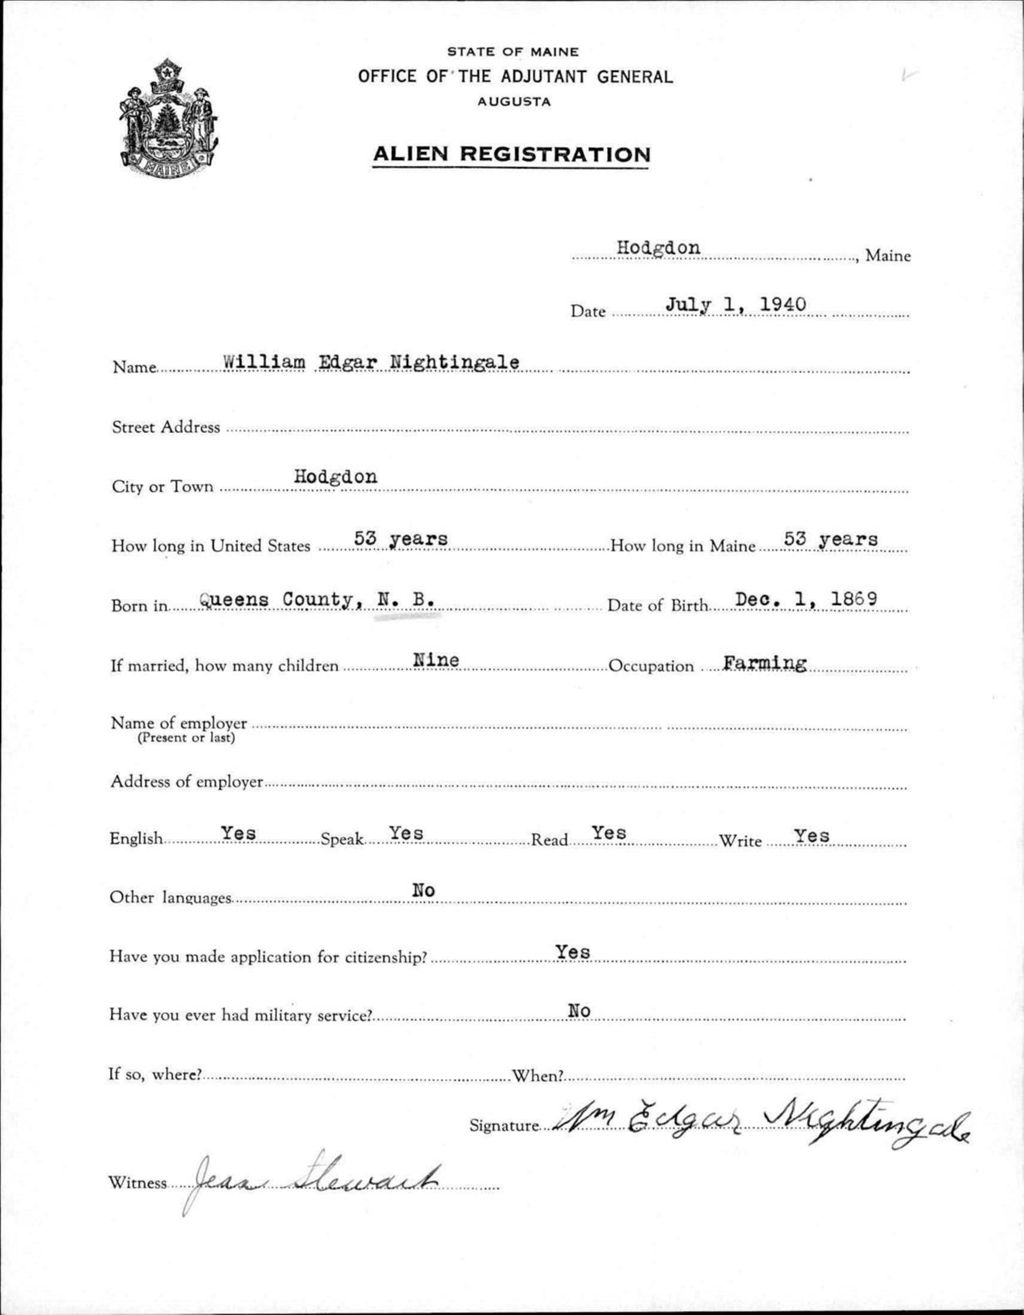 STATE OF MAINE
OFFICE OF THE ADJUTANT GENERAL
AUGUSTA
ALIEN REGISTRATION
MAINE
Hodgdon, Maine
Date July 1, 1940
Name William Edgar Nightingale
Street Address
City or Town Hodgdon
How long in United States 53 years How long in Maine 53 years
Born in Queens County, N. B. Date of Birth Dec. 1, 1869
If married, how many children Nine Occupation Farming
Name of employer
(Present or last)
Address of employer
English Yes Speak Yes Read Yes Write Yes
Other languages No
Have you made application for citizenship? Yes
Have you ever had military service? No
If so, where? When?
Signature Wm Edgar Nightingale
Witness Jean Stewart